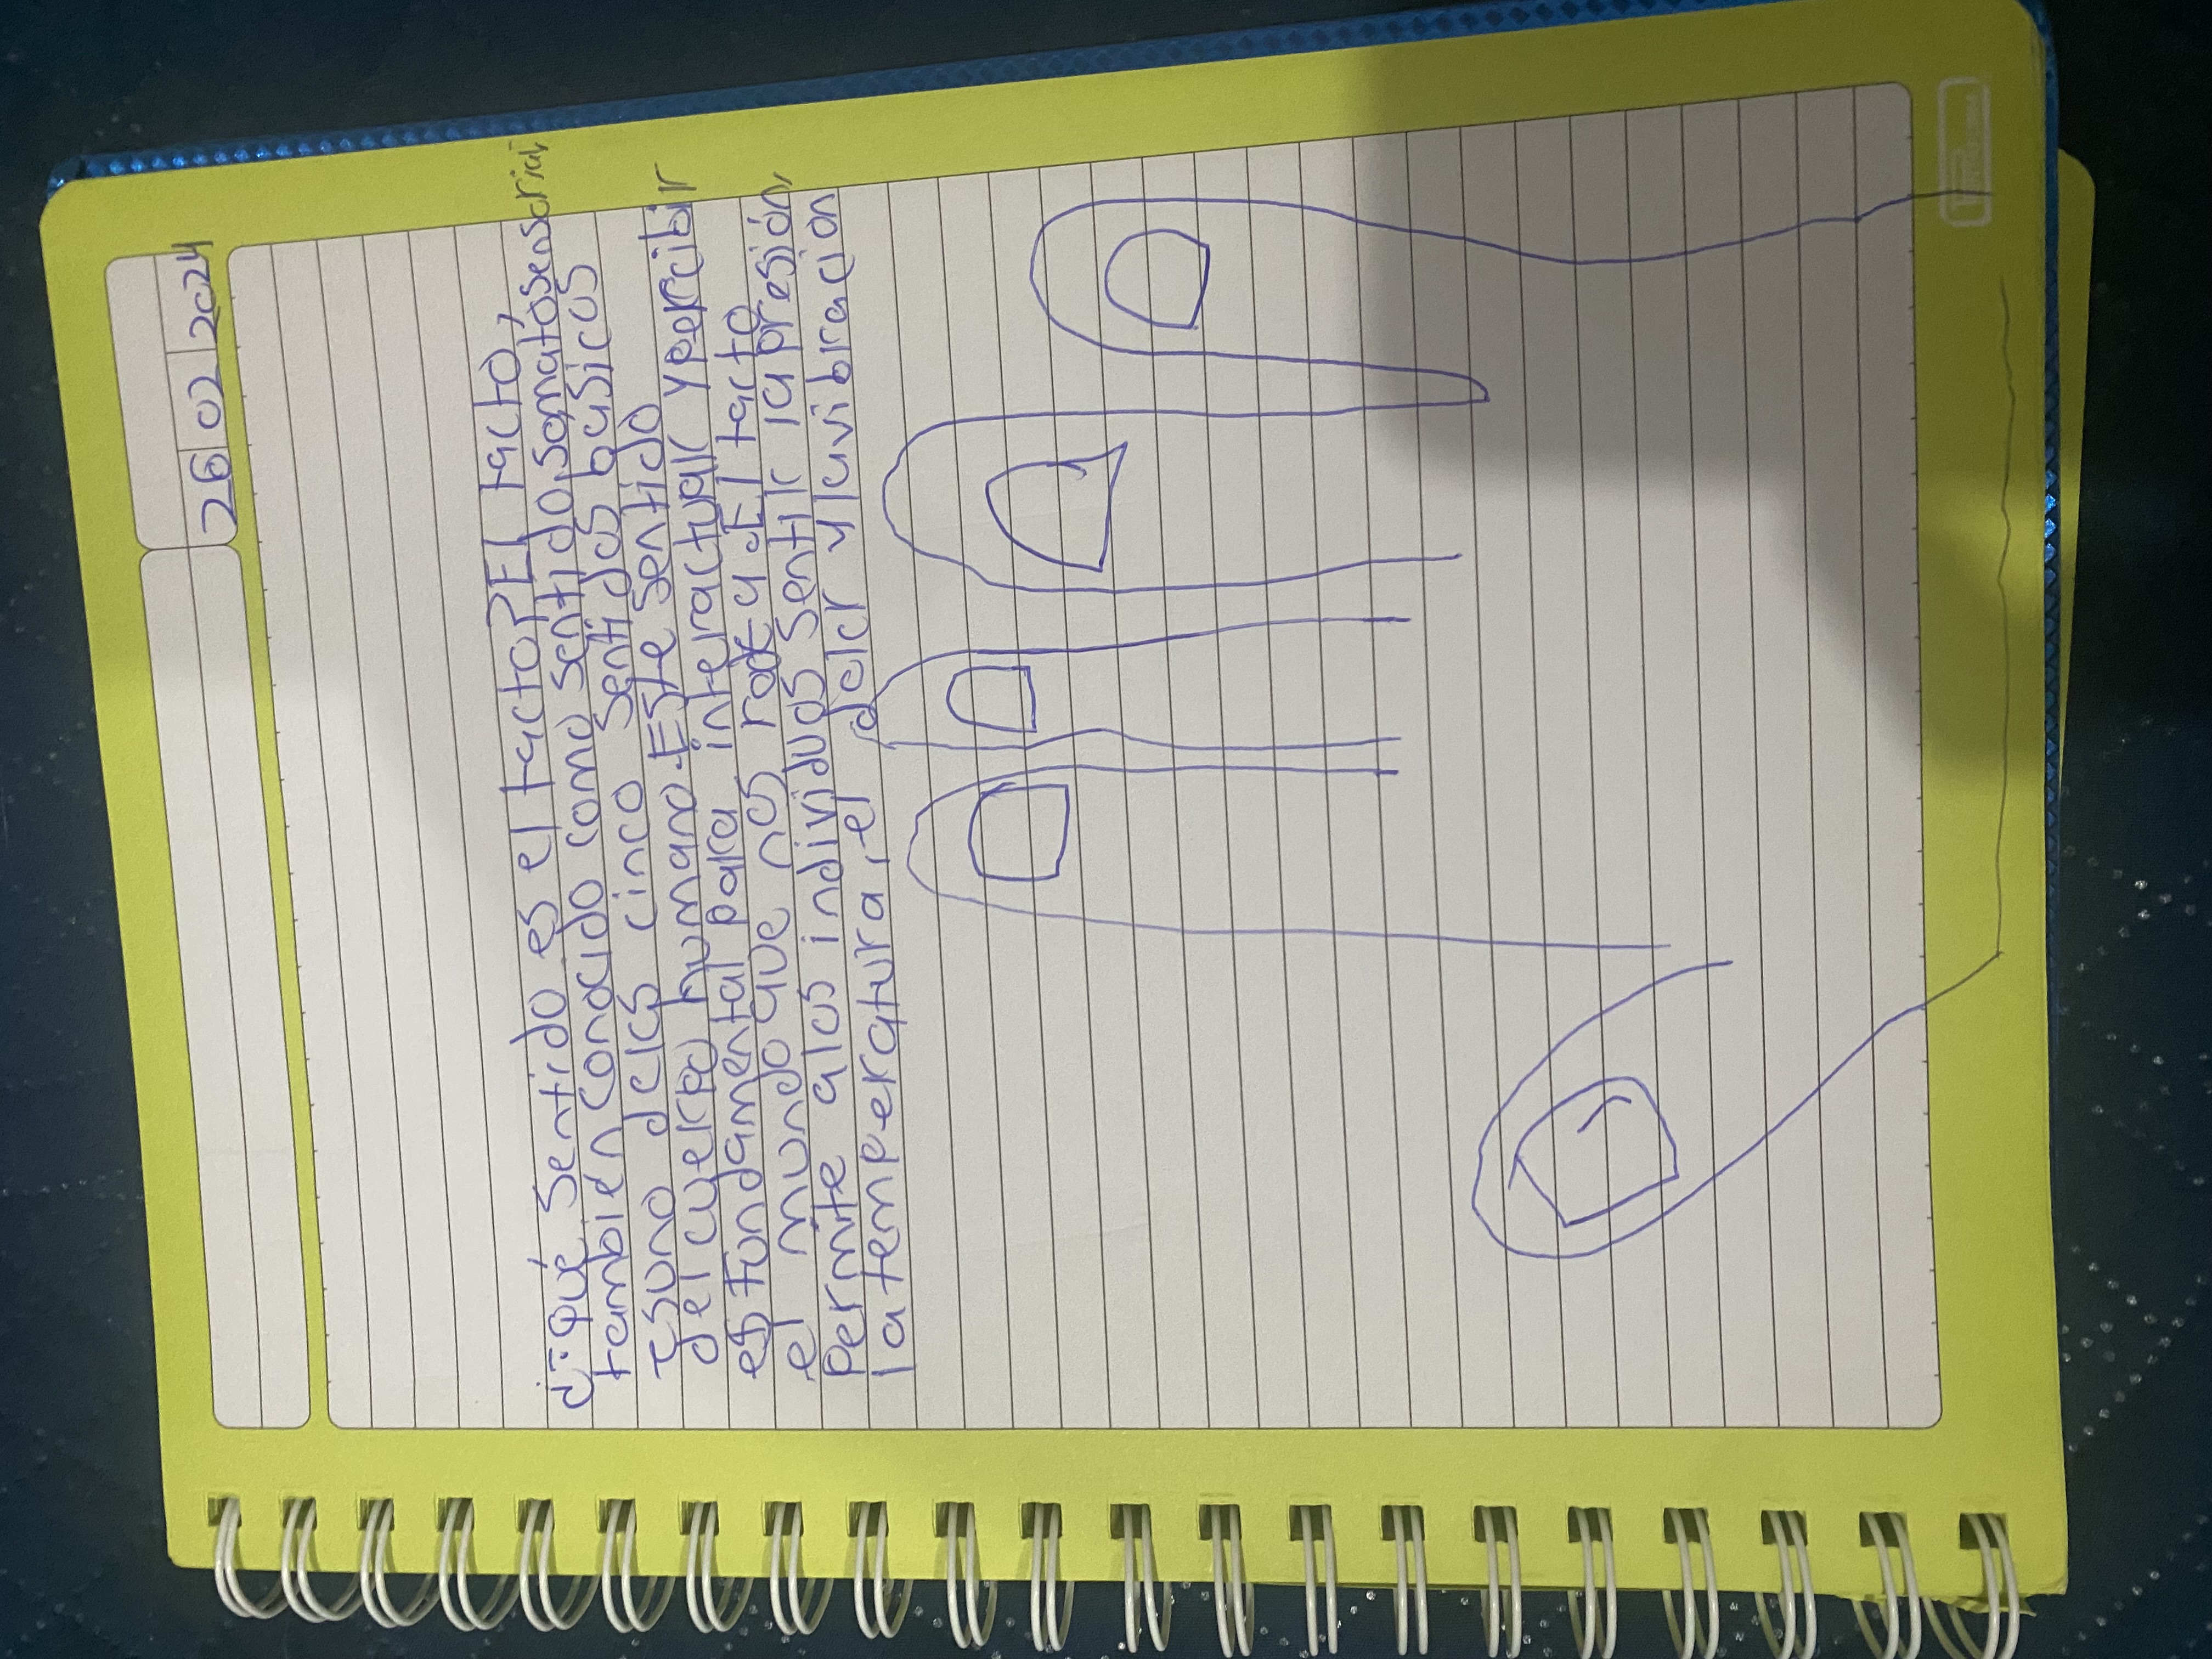 26 02 2024
¿qué Sentido es el tacto?El tacto,
tambien conocido como sentido somatosensorial
esuno delos cinco sentidos basicos
del cuerpo humano.Este sentido
es fundamental para interactuar ypercibir
el mundo que nos rodea.El tacto
Permite alos individuos sentir la presión,
la temperatura, el dolor y lavibracion